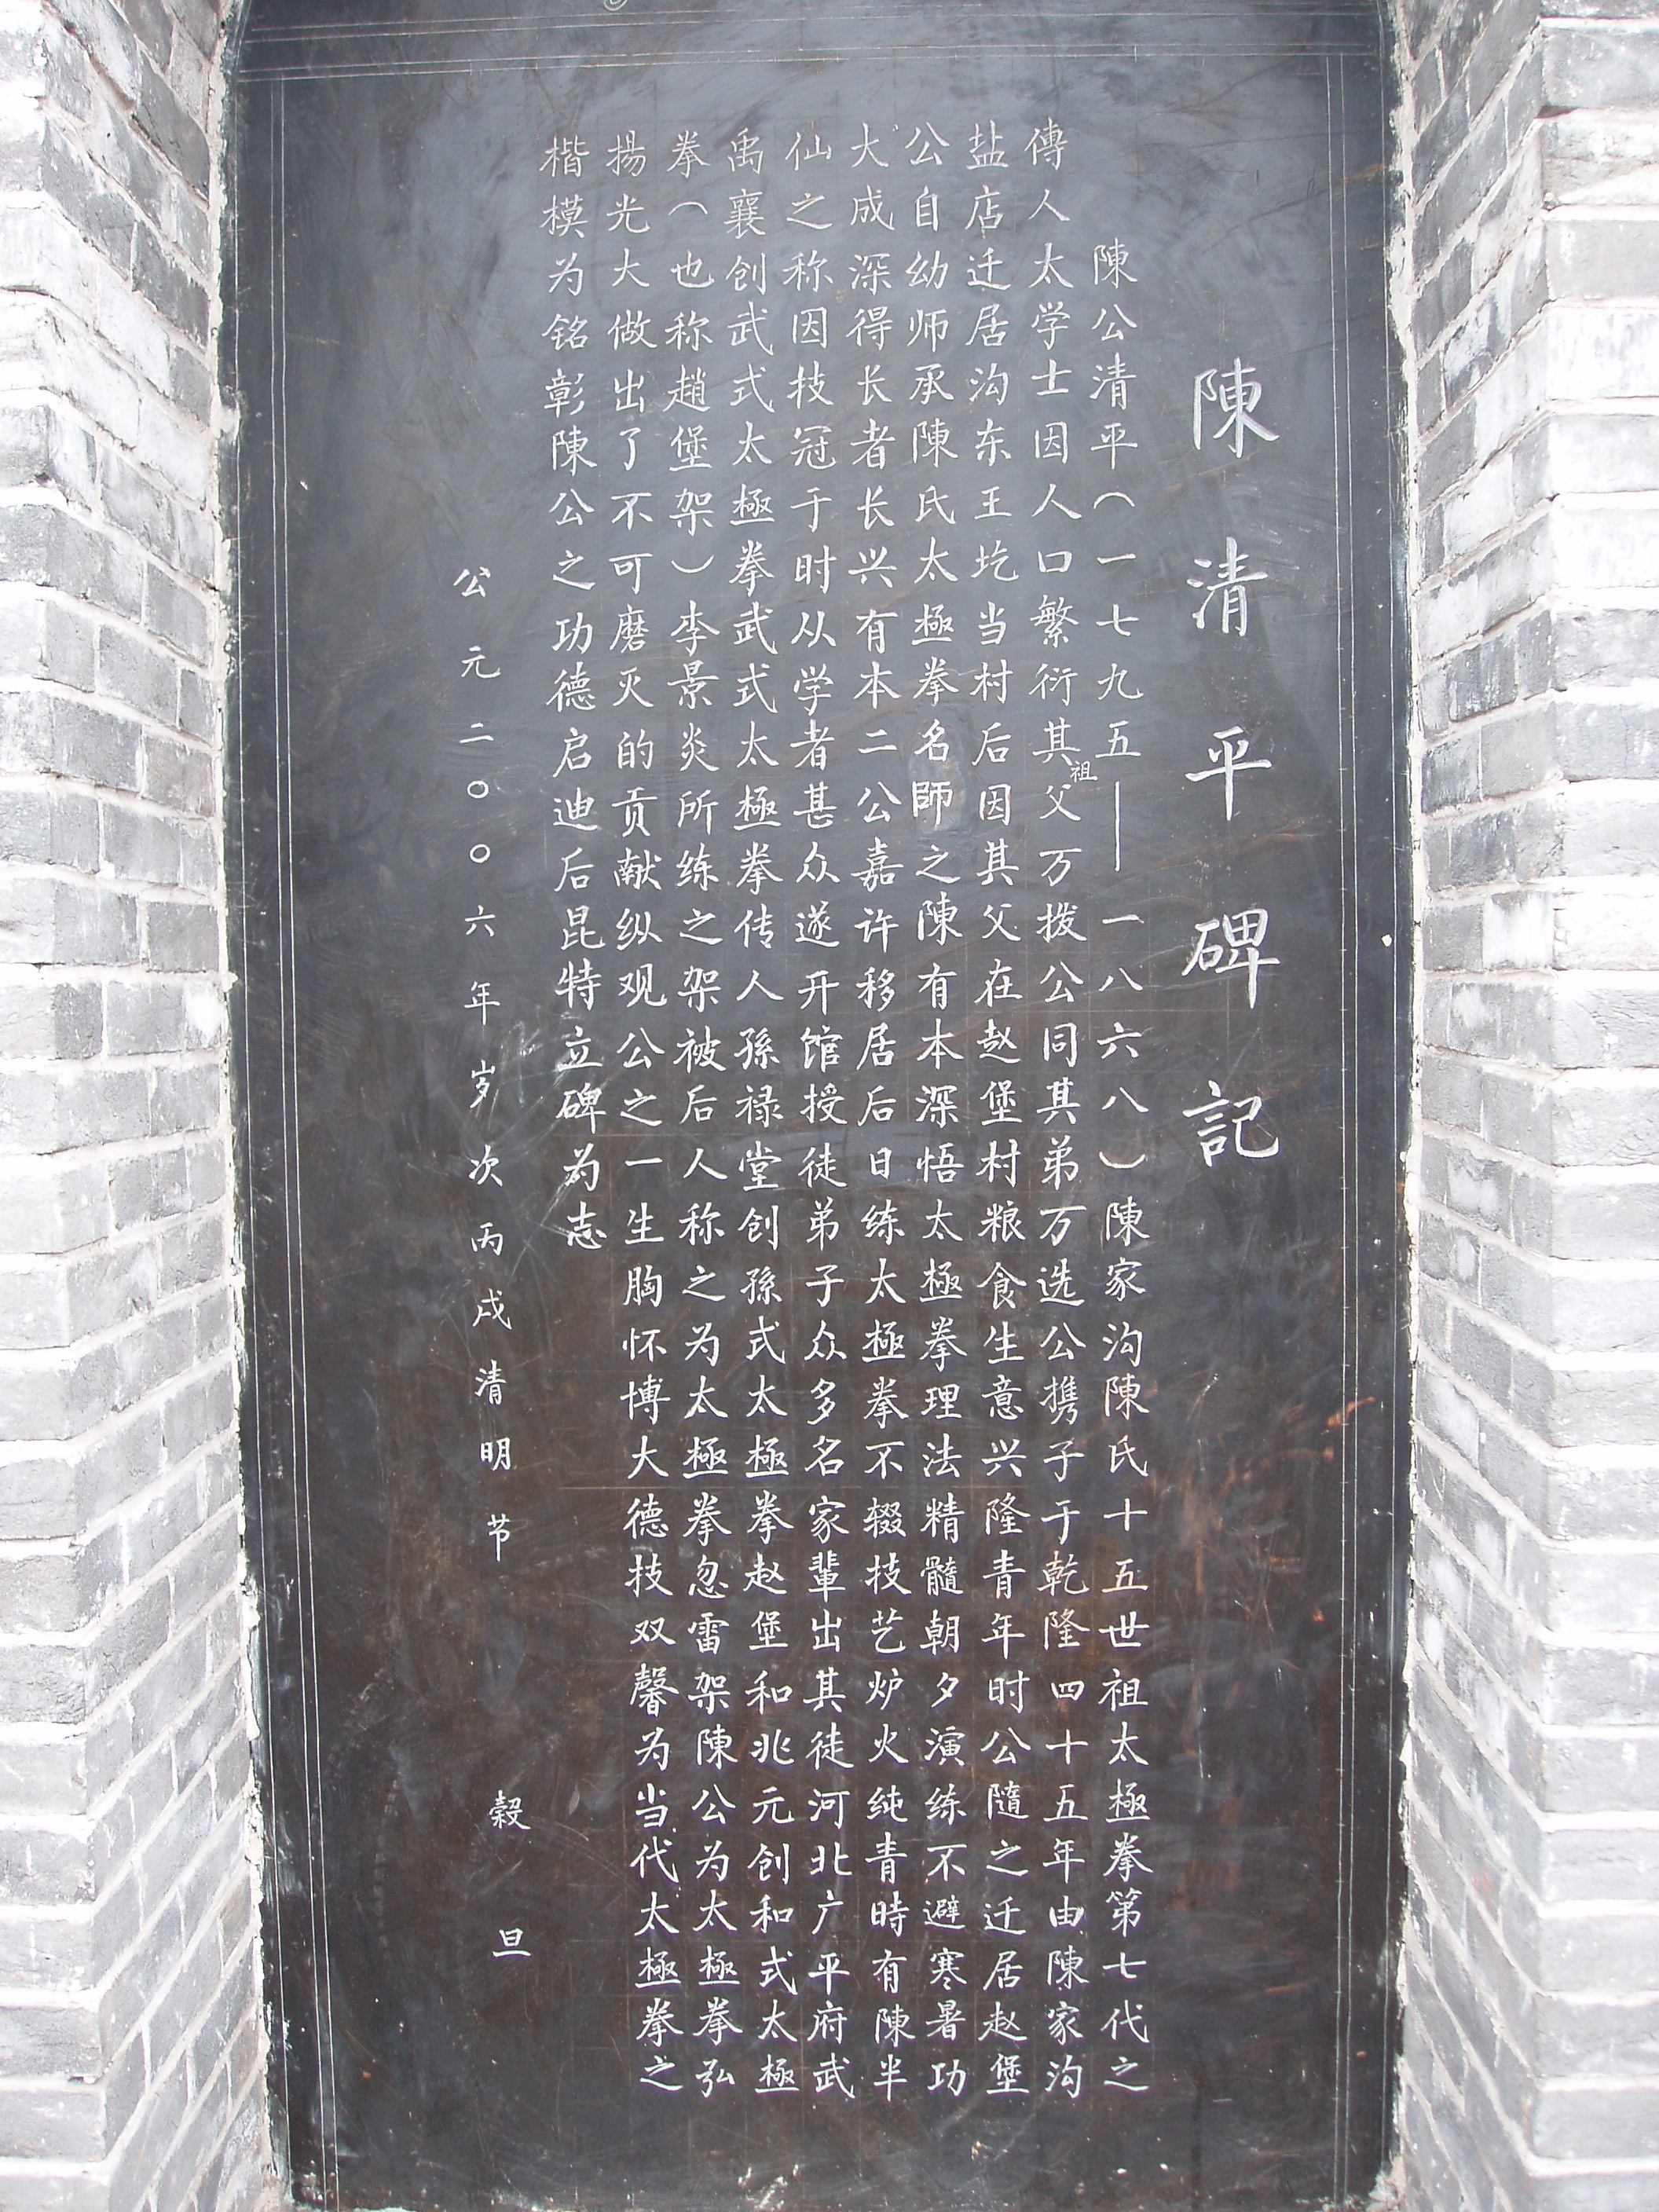 陳清平碑記
陳公清平（一七九五——一八六八）陳家沟陳氏十五世祖太極拳第七代之
傳人太学士因人口繁衍其祖父万拨公同其弟万选公携子于乾隆四十五年由陳家沟
盐店迁居沟东王圪当村后因其父在赵堡村粮食生意兴隆青年时公隨之迁居赵堡
公自幼师承陳氏太極拳名師之陳有本深悟太極拳理法精髓朝夕演练不避寒暑功
大成深得长者长兴有本二公嘉许移居后日练太極拳不辍技艺炉火纯青時有陳半
仙之称因技冠于时从学者甚众遂开馆授徒弟子众多名家輩出其徒河北广平府武
禹襄创武式太極拳武式太極拳传人孫禄堂创孫式太極拳赵堡和兆元创和式太極
拳（也称趙堡架）李景炎所练之架被后人称之为太極拳忽雷架陳公为太極拳弘
揚光大做出了不可磨灭的贡献纵观公之一生胸怀博大德技双馨为当代太極拳之
楷模为铭彰陳公之功德启迪后昆特立碑为志
公元二〇〇六年岁次丙戌清明节 榖旦